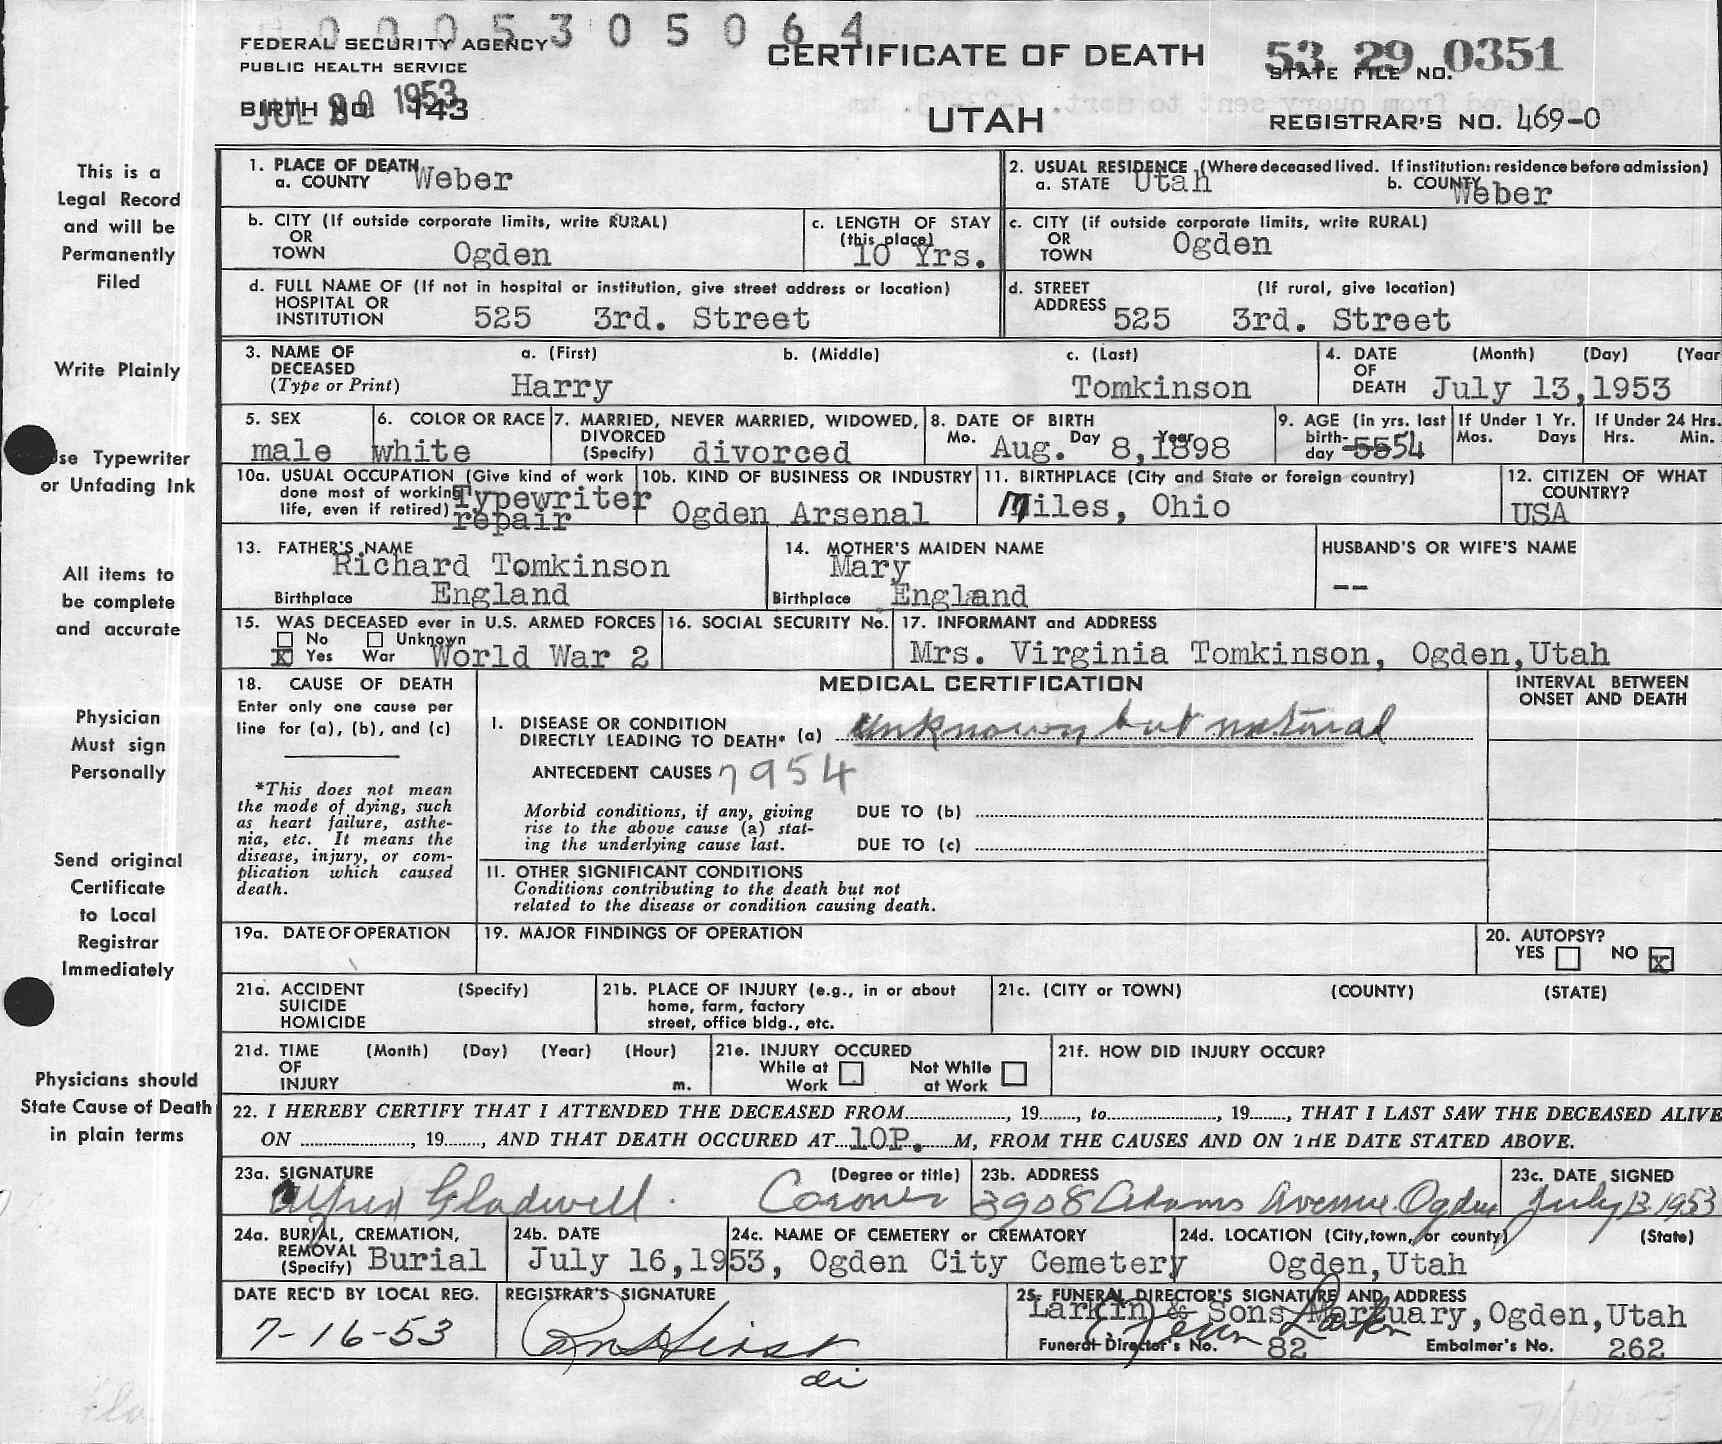 0005305064
FEDERAL SECURITY AGENCY
PUBLIC HEALTH SERVICE
CERTIFICATE OF DEATH
53 29 0351
STATE FILE NO.
JUL 20 1953
BIRTH NO. 143
UTAH
REGISTRAR'S NO. 469-0
This is a
Legal Record
and will be
Permanently
Filed
Write Plainly
Use Typewriter
or Unfading Ink
All items to
be complete
and accurate
Physician
Must sign
Personally
Send original
Certificate
to Local
Registrar
Immediately
Physicians should
State Cause of Death
in plain terms
1. PLACE OF DEATH
a. COUNTY Weber
2. USUAL RESIDENCE (Where deceased lived. If institution: residence before admission)
a. STATE Utah b. COUNTY Weber
b. CITY (If outside corporate limits, write RURAL)
OR
TOWN Ogden
c. LENGTH OF STAY
(this place)
10 Yrs.
c. CITY (if outside corporate limits, write RURAL)
OR
TOWN Ogden
d. FULL NAME OF (If not in hospital or institution, give street address or location)
HOSPITAL OR
INSTITUTION 525 3rd. Street
d. STREET (If rural, give location)
ADDRESS 525 3rd. Street
3. NAME OF a. (First) b. (Middle) c. (Last)
DECEASED
(Type or Print) Harry Tomkinson
4. DATE (Month) (Day) (Year
OF
DEATH July 13,1953
5. SEX
male
6. COLOR OR RACE
white
7. MARRIED, NEVER MARRIED, WIDOWED,
DIVORCED
(Specify) divorced
8. DATE OF BIRTH
Mo. Day Year
Aug. 8,1898
9. AGE (in yrs. last
birth-
day 55 54
If Under 1 Yr.
Mos. Days
If Under 24 Hrs.
Hrs. Min.
10a. USUAL OCCUPATION (Give kind of work
done most of working
life, even if retired) Typewriter
repair
10b. KIND OF BUSINESS OR INDUSTRY
Ogden Arsenal
11. BIRTHPLACE (City and State or foreign country)
Niles, Ohio
12. CITIZEN OF WHAT
COUNTRY?
USA
13. FATHER'S NAME
Richard Tomkinson
Birthplace England
14. MOTHER'S MAIDEN NAME
Mary
Birthplace England
HUSBAND'S OR WIFE'S NAME
--
15. WAS DECEASED ever in U.S. ARMED FORCES
No Unknown
X Yes War World War 2
16. SOCIAL SECURITY No.
17. INFORMANT and ADDRESS
Mrs. Virginia Tomkinson, Ogden,Utah
18. CAUSE OF DEATH
Enter only one cause per
line for (a), (b), and (c)
*This does not mean
the mode of dying, such
as heart failure, asthe-
nia, etc. It means the
disease, injury, or com-
plication which caused
death.
MEDICAL CERTIFICATION
INTERVAL BETWEEN
ONSET AND DEATH
I. DISEASE OR CONDITION
DIRECTLY LEADING TO DEATH* (a) unknown but natural
ANTECEDENT CAUSES 7954
Morbid conditions, if any, giving
rise to the above cause (a) stat-
ing the underlying cause last.
DUE TO (b)
DUE TO (c)
II. OTHER SIGNIFICANT CONDITIONS
Conditions contributing to the death but not
related to the disease or condition causing death.
19a. DATE OF OPERATION
19. MAJOR FINDINGS OF OPERATION
20. AUTOPSY?
YES NO X
21a. ACCIDENT (Specify)
SUICIDE
HOMICIDE
21b. PLACE OF INJURY (e.g., in or about
home, farm, factory
street, office bldg., etc.
21c. (CITY or TOWN) (COUNTY) (STATE)
21d. TIME (Month) (Day) (Year) (Hour)
OF
INJURY m.
21e. INJURY OCCURED
While at Not While
Work at Work
21f. HOW DID INJURY OCCUR?
22. I HEREBY CERTIFY THAT I ATTENDED THE DECEASED FROM , 19 , to , 19 , THAT I LAST SAW THE DECEASED ALIVE
ON , 19 , AND THAT DEATH OCCURED AT 10P. M, FROM THE CAUSES AND ON THE DATE STATED ABOVE.
23a. SIGNATURE (Degree or title)
Alfred Gladwell. Coroner
23b. ADDRESS
3908 Adams Avenue Ogden
23c. DATE SIGNED
July 13 1953
24a. BURIAL, CREMATION,
REMOVAL
(Specify) Burial
24b. DATE
July 16,1953,
24c. NAME OF CEMETERY or CREMATORY
Ogden City Cemetery
24d. LOCATION (City,town, or county) (State)
Ogden,Utah
DATE REC'D BY LOCAL REG.
7-16-53
REGISTRAR'S SIGNATURE
di
25. FUNERAL DIRECTOR'S SIGNATURE AND ADDRESS
Larkin & Sons Mortuary,Ogden,Utah
Funeral Director's No. 82 Embalmer's No. 262